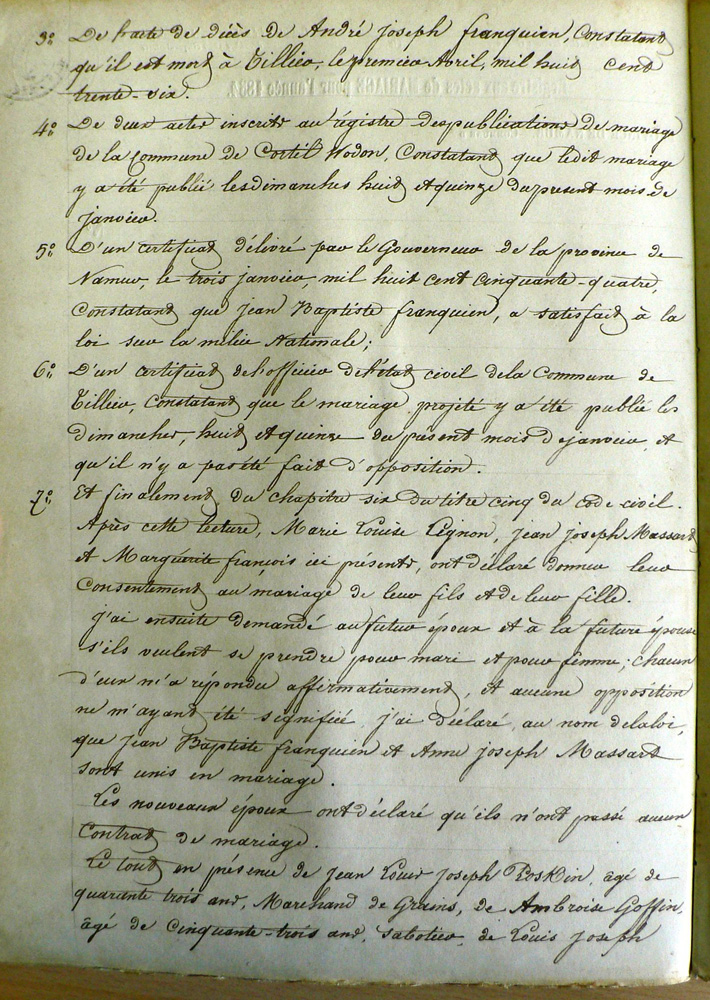 3º De l'acte de décès de André joseph franquien, Constatant
qu'il est mort à Tillier, le premier Avril, mil huit cent
trente-six.
4º De deux actes inscrits au régistre des publications de mariage
de la Commune de Cortil Wodon, Constatant que ledit mariage
y a été publié les dimanches huit et quinze du present mois de
janvier.
5º D'un certificat délivré par le Gouverneur de la province de
Namur, le trois janvier, mil huit cent cinquante-quatre,
Constatant que jean Baptiste franquien, a satisfait à la
loi sur la milice Nationale;
6º D'un certificat de l'officier de l'état civil de la Commune de
Tillier, Constatant que le mariage projeté y a été publié les
dimanches, huit et quinze du présent mois de janvier et
qu'il n'y a pas été fait d'opposition.
7º Et finalement du chapitre six du titre cinq du code civil.
Après cette lecture, Marie Louise Lignon, jean joseph Massart
et Marguerite françois ici présents, ont déclaré donner leur
Consentement au mariage de leur fils et de leur fille.
j'ai ensuite demandé au futur époux et à la future épouse
s'ils veulent se prendre pour mari et pour femme; chacun
d'eux m'a répondu affirmativement, et aucune opposition
ne m'ayant été signifiée j'ai déclaré au nom de la loi,
que jean Baptiste franquien et Anne joseph Massart
sont unis en mariage.
Les nouveaux époux ont déclaré qu'ils n'ont passé aucun
Contrat de mariage.
Le tout en présence de jean Louis joseph âgé de
quarante trois ans, Marchand de Grains, de Ambroise Goffin,
âgé de Cinquante-trois ans, sabotier, de Louis joseph